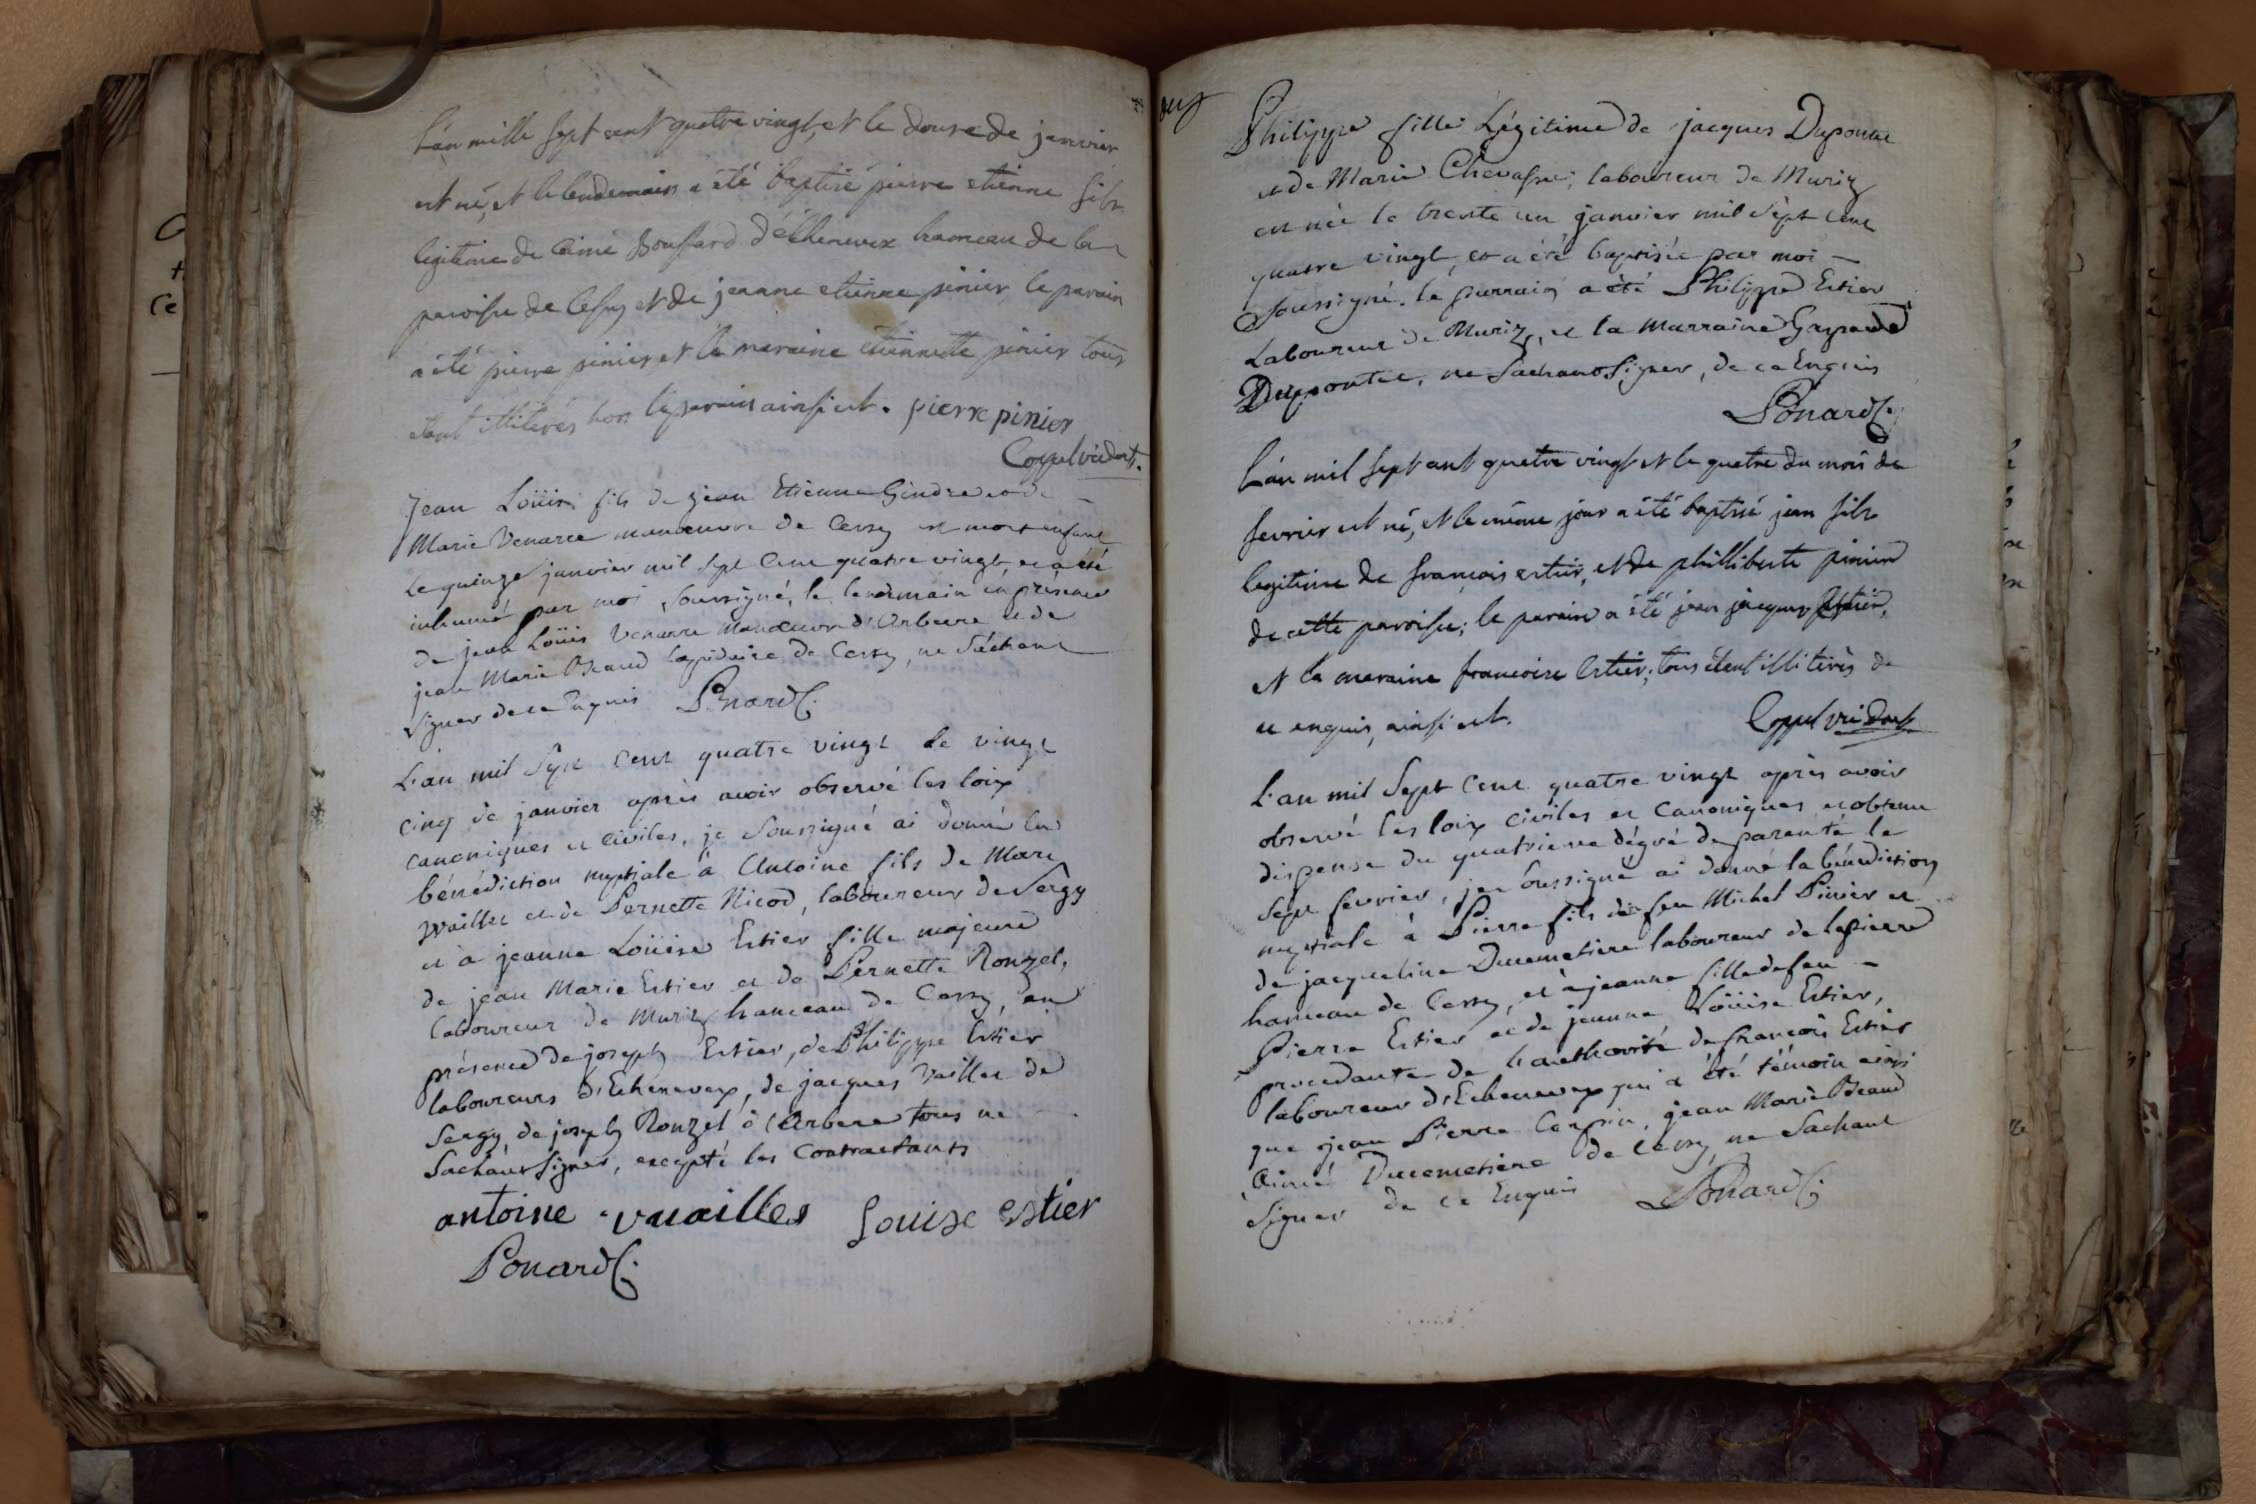 L'an mille sept cent quatre vingt, et le douse de janvier
est né, et le lendemain a été baptisé pierre etienne fils
legitime de aimé Bouffard d'échenevex hameau de la
paroisse de Cessy et de jeanne etienne pinier, le parain
a été pierre pinier et la maraine etiennette pinier tous
étant illiterés hors le parain ainsi est. pierre pinier
Jean Loüis fils de jean Etienne Gindre et de
Marie Venarre manoeuvre de Cessy est mort enfant
Le quinze janvier mil sept Cent quatre vingt, et a été
inhumé par moi soussigné, le lendemain en présence
de jean Loüis Venarre manoeuvre d'Arbere et de
jean Marie Beaud lapidaire de Cessy, ne Sachant
signer de ce Enquis Ponard C.
L'an mil Sept Cent quatre vingt le vingt
cinq de janvier après avoir observé les loix
canoniques et civiles, je soussigné ai donné la
bénédiction nuptiale à Antoine fils de Marc
Waillet et de Pernette Nicod, laboureur de Sergy
et à jeanne Loüise Estier fille majeure
de jean Marie Estier et de Pernette Ronzel,
laboureur de Muriz hameau de Cessy, en
présence de joseph Estier, de Philippe Estier
laboureurs d'Echenevex, de jacques Vaillet de
Sergy, de joseph Ronzel d'Arbere tous ne
Sachant signer, excepté les Contractants
antoine vuailles Louise estier
Ponard C.
Philippe fille Légitime de jacques Duponte
et de Marie Chevassu, laboureur de Muriz
est née le trente un janvier mil Sept Cent
quatre vingt, et a été baptisée par moi
soussigné. le parrain a été Philippe Estier
Laboureur de Muriz, et la Marraine Gasparde
Duponte, ne Sachant Signer, de ce Enquis
Ponard C.
L'an mil sept cent quatre vingt et le quatre du mois de
fevrier est né, et le même jour a été baptisé jean fils
legitime de françois estier, et de philliberte pinier
de cette paroisse; le parain a été jean jacques
et la maraine francoise Estier; tous étant illiterés de
ce enquis, ainsi est.
L'an mil Sept Cent quatre vingt après avoir
observé les loix civiles et Canoniques et obtenu
dispense du quatrième dégré de parenté le
Sept fevrier, je soussigné ai donné la bénédiction
nuptiale à Pierre fils de feu Michel Pinier et
de jacqueline Ducemetiere laboureur de lapierre
hameau de Cessy, et à jeanne fille de feu
Pierre Estier et de jeanne Loüise Estier,
procedante de l'authorité de françois Estier
laboureur d'Echenevex qui a été témoin ainsi
que jean Pierre jean Marie Beaud
Aimé Ducemetiere de Cessy, ne Sachant
Signer de ce Enquis Ponard C.